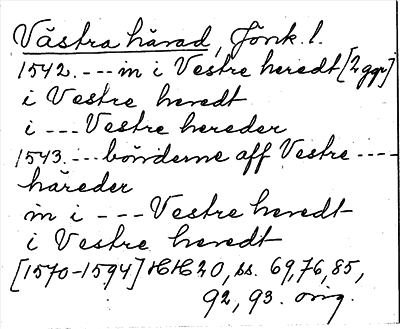 Västra härad, Jönk. l.
1542. --- m i Vestre heredt [2 ggr]
i Vestre heredt
i --- Vestre hereder
1543. --- bönderne aff Vestre ----
häreder
m i --- Vestre heredt
i Vestre heredt
[1570-1594] HH 20, ss. 69, 76, 85,
92, 93. orig.